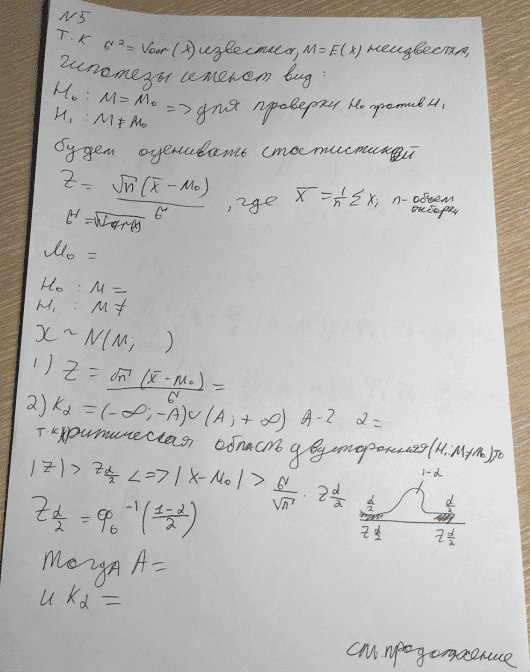 N5
Т.К σ² = Var(X) известна, M = E(X) неизвестна,
гипотезы имеют вид:
H₀ : M = M₀ => для проверки H₀ против H₁
H₁ : M ≠ M₀
будем оценивать статистикой
Z = √n (x̄ - M₀) / σ , где x̄ = 1/n Σ xᵢ n - объем выборки
σ = √Var(x)
M₀ =
H₀ : M =
H₁ : M ≠
X ~ N(M; )
1) Z = √n (x̄ - M₀) / σ =
2) K_α = (-∞; -A) ∪ (A; +∞) A - ? α =
т.к критическая область двусторонняя (H₁: M ≠ M₀), то
|Z| > Z α/2 <=> |X - M₀| > σ/√n · Z α/2
1-α
α/2 α/2
Z α/2 Z α/2
Z α/2 = φ₀⁻¹ ((1-α)/2)
Тогда A =
и K_α =
см. продолжение